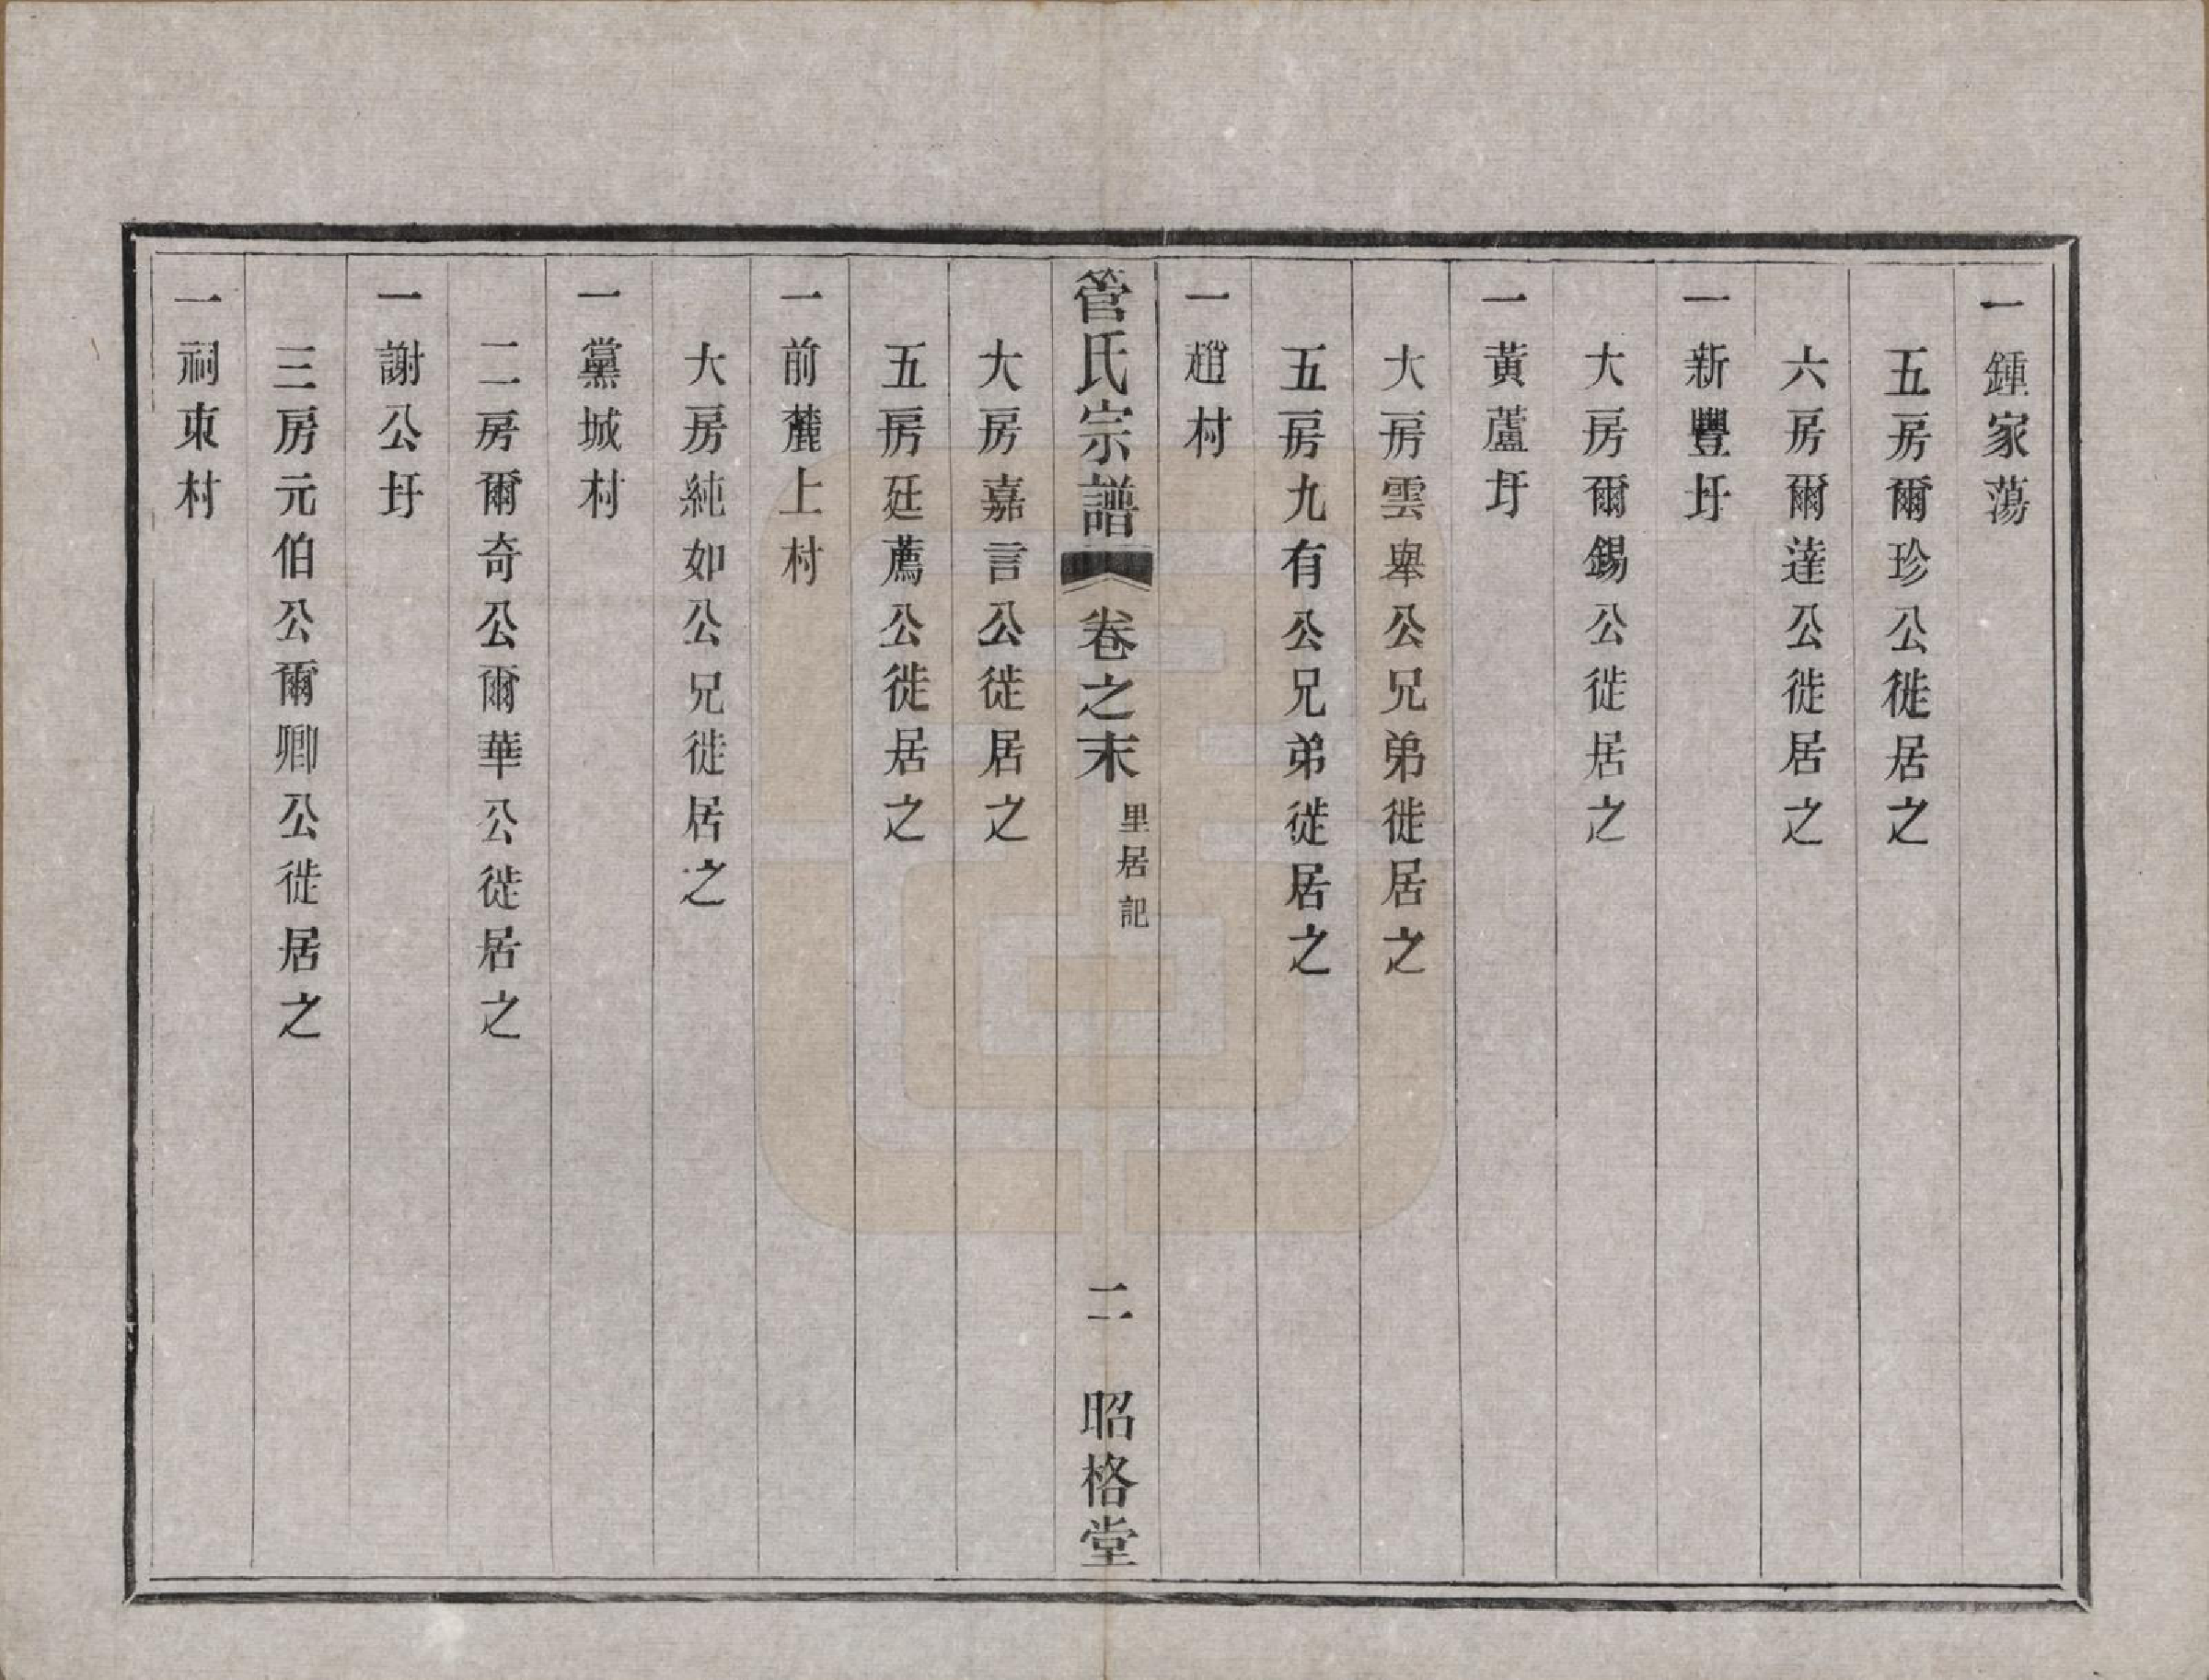 一鍾家蕩
五房爾珍公徙居之
六房爾達公徙居之
一新豐圩
大房爾錫公徙居之
一黃蘆圩
大房雲舉公兄弟徙居之
五房九有公兄弟徙居之
一趙村
管氏宗譜 卷之末 里居記 二 昭格堂
大房嘉言公徙居之
五房廷薦公徙居之
一前麓上村
大房純如公兄徙居之
一黨城村
二房爾奇公爾華公徙居之
一謝公圩
三房元伯公爾卿公徙居之
一祠東村